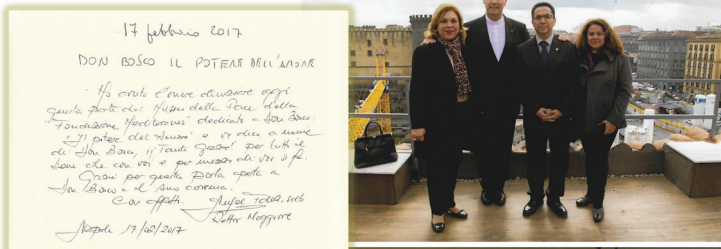 17 febbraio 2017
DON BOSCO IL POTERE DELL'AMORE
Ho avuto l'onore di visitare oggi
questa parte del Museo della Pace della
"Fondazione Mediterraneo" dedicato a Don Bosco:
"Il potere dell'Amore" e vi dico a nome
di Don Bosco, il "Tante Grazie" per tutto il
bene che con voi e per mezzo di voi si fa.
Grazie per questa porta aperta a
Don Bosco e il suo carisma.
Con affetto.
Rettor Maggiore
Napoli 17/02/2017